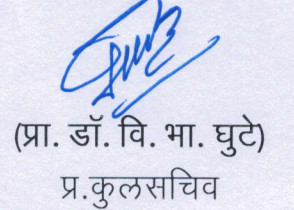 (प्रा. डॉ. वि. भा. घुटे)
प्र.कुलसचिव